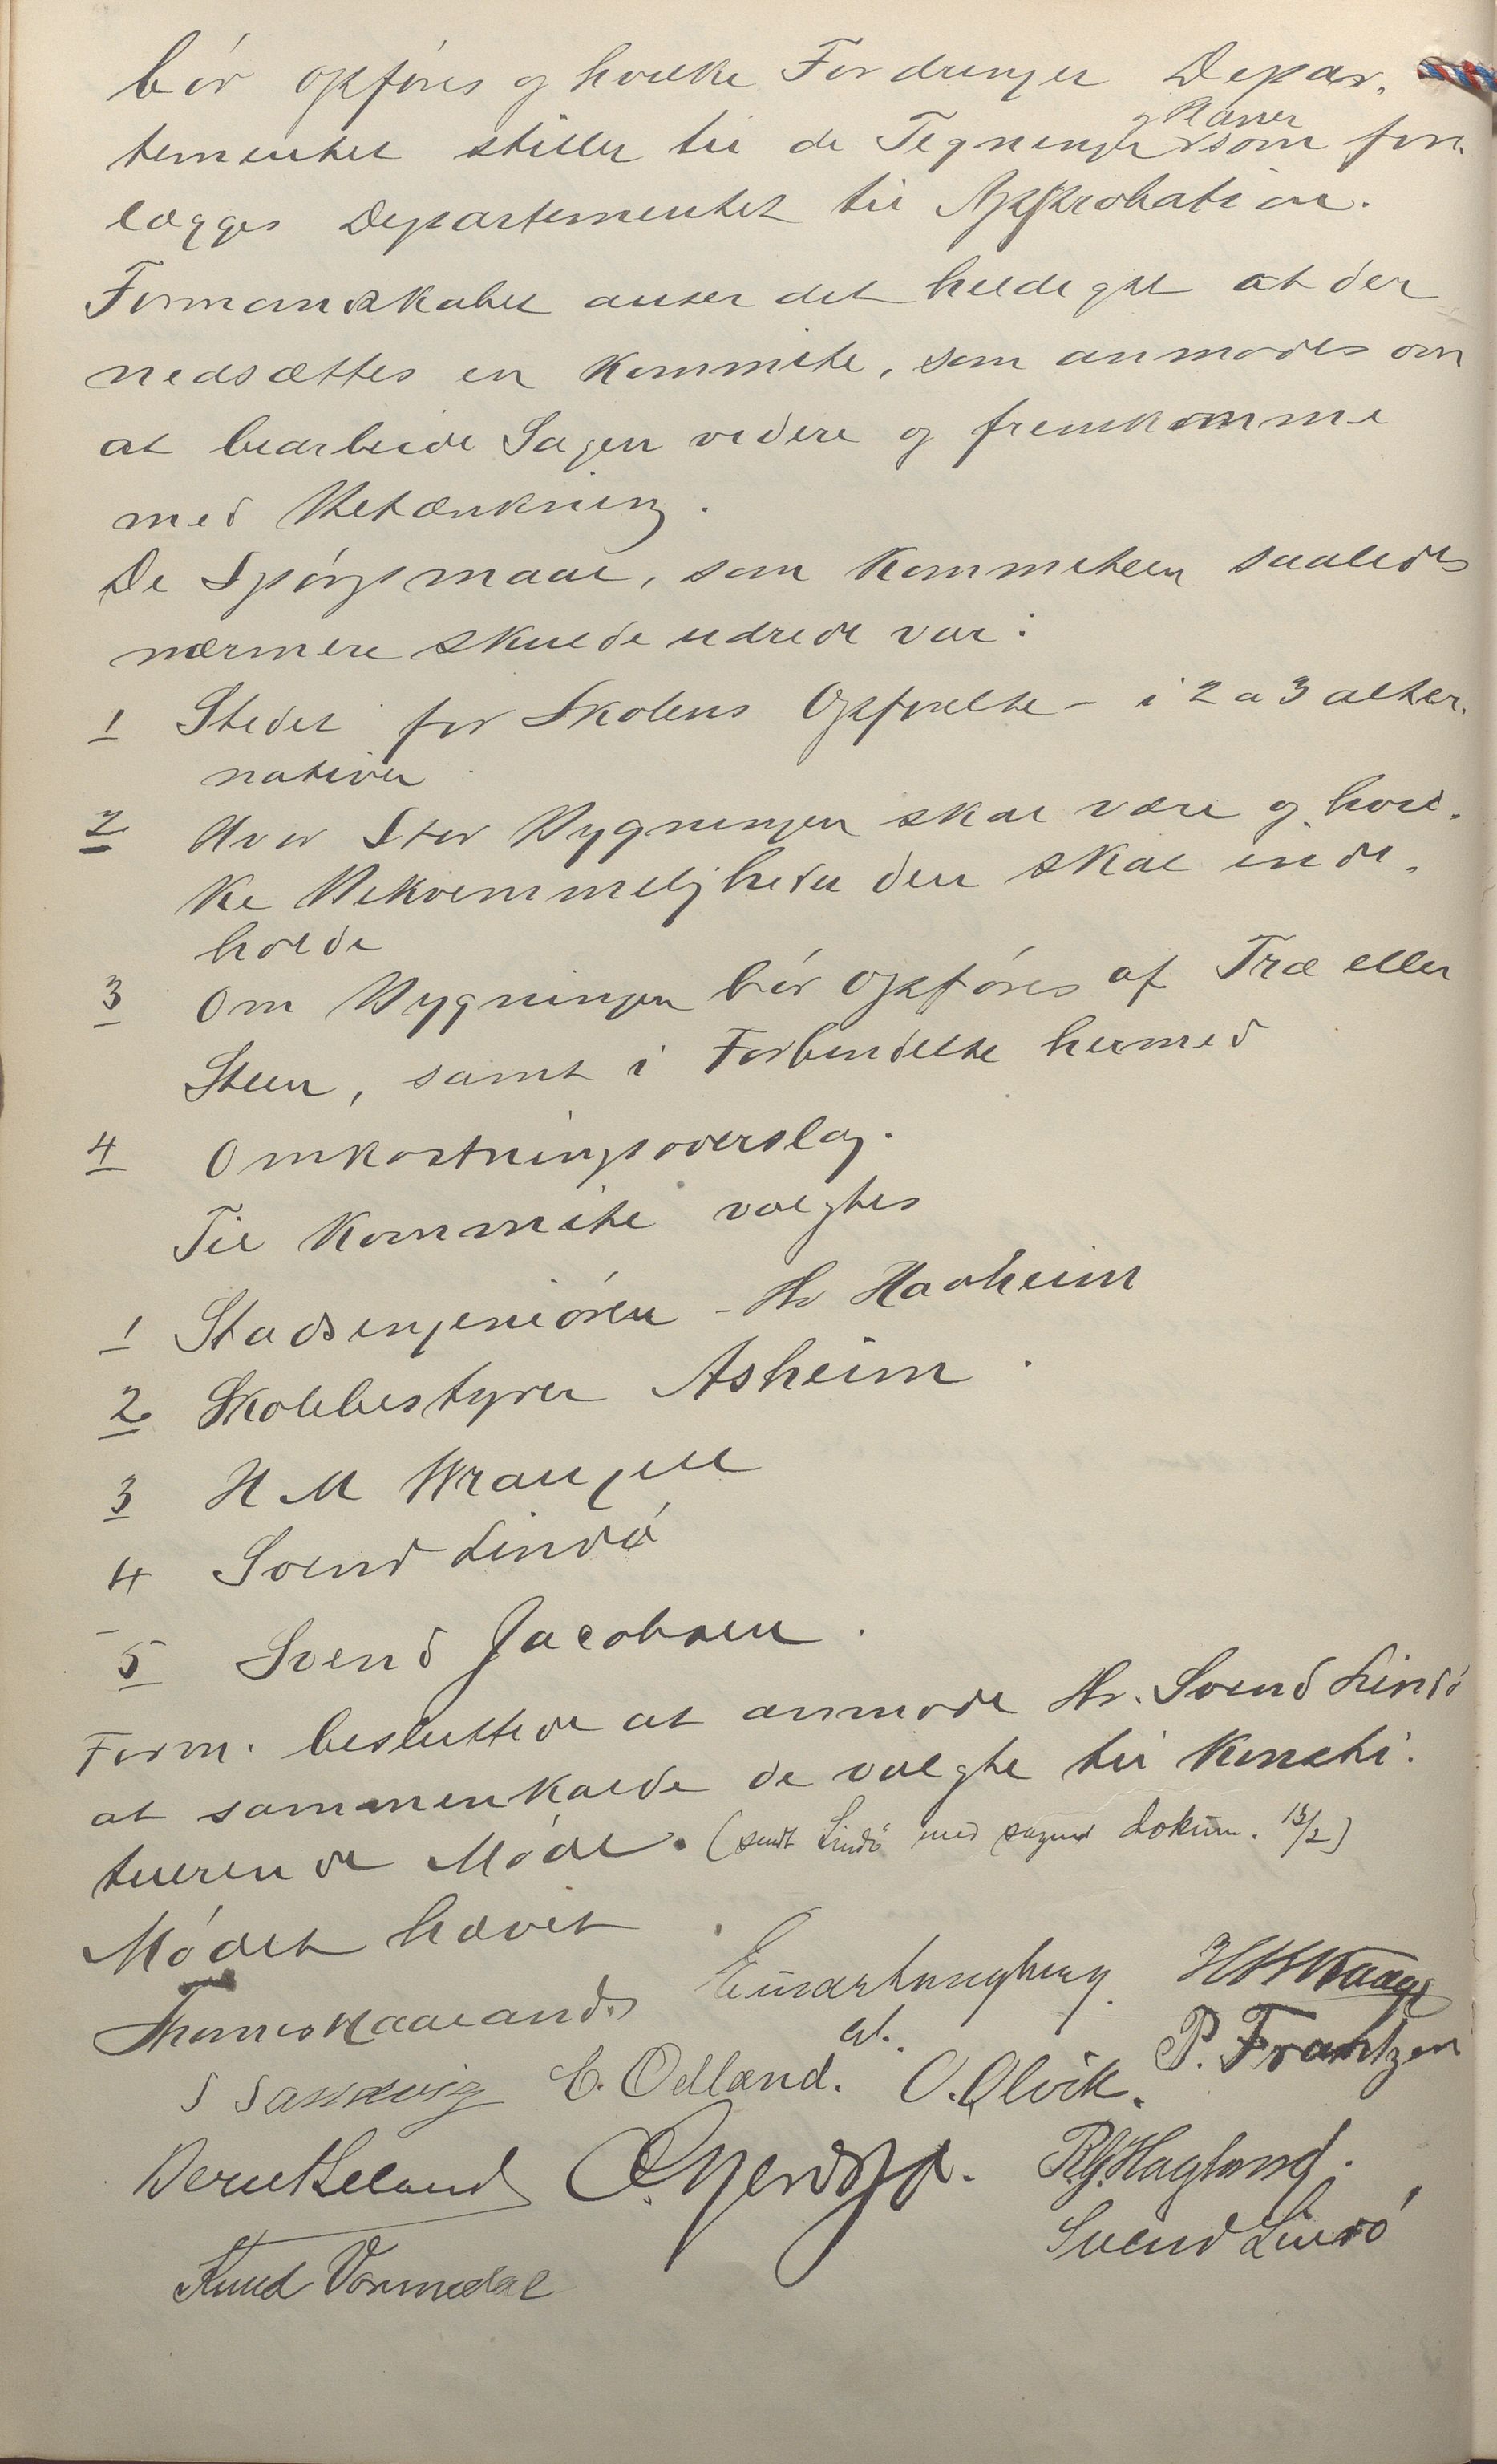 bör opføres og hvilke Fordringer Depar-
tementet stiller til de Tegninger og Planer som fore-
lægges Departementet til Approbation.
Formandskabet anser det heldigst at der
nedsættes en Kommite, som anmodes om
at bearbeide Sagen videre og fremkomme
med Betænkning.
De Spørgsmaal, som Kommiteen saaledes
nærmere skulde udrede var:
1 Stedet for Skolens Opførelse - i 2 a 3 alter-
nativer
2 Hvor Stor Bygningen skal være og hvil-
ke Bekvemmeligheder den skal inde-
holde
3 Om Bygningen bör opføres af Træ eller
Steen, samt i Forbindelse hermed
4 Omkostningsoverslag.
Til Kommite valgtes
1 Stadsingeniøren - Hr Havheim
2 Skolebestyrer Asheim.
3 H M Wrangell
4 Svend Lindø
5 Svend Jacobsen.
Form. besluttede at anmode Hr. Svend Lindø
at sammenkalde de valgte til Konsti-
tuerende Møde. (sendt Lindø med sagens dokum. 13/2)
Mødet hævet.
Thomas Waaland Einar Langberg
S Sandvig E. Odland. O. Olvik. P. Frantzen
Bernt Leland Rg. Hagland.
Svend Lindø
Knud Vormedal